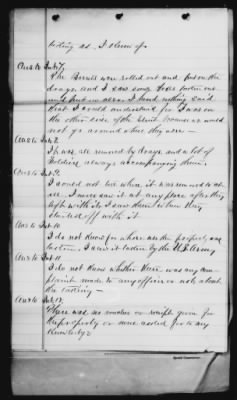 taking as I know of.
Ans to Int 7.
The Barrels were rolled out and put on the
drays, and I saw some taken out
and put on drays I heard nothing said.
that I could understand for I was on
the other side of the street because we would
not go around where they were —
Ans to Int 8.
It was all removed by drays and a lot of
Soldiers always accompanying them.
Ans to Int 9.
I could not tell where it was removed to at
all. I never saw it at any place after they
left with it, I saw them when they
started off with it
Ans to Int 10
I do not know for whose use the property was
taken. I saw it taken by the U.S. Army
Ans to Int 11
I do not know whether there was any com-
plaint made to any officer or not about
the taking —
Ans to Int 12.
There was no voucher or receipt given for
the property or none asked for to my
Knowledge
Special Commissioner.